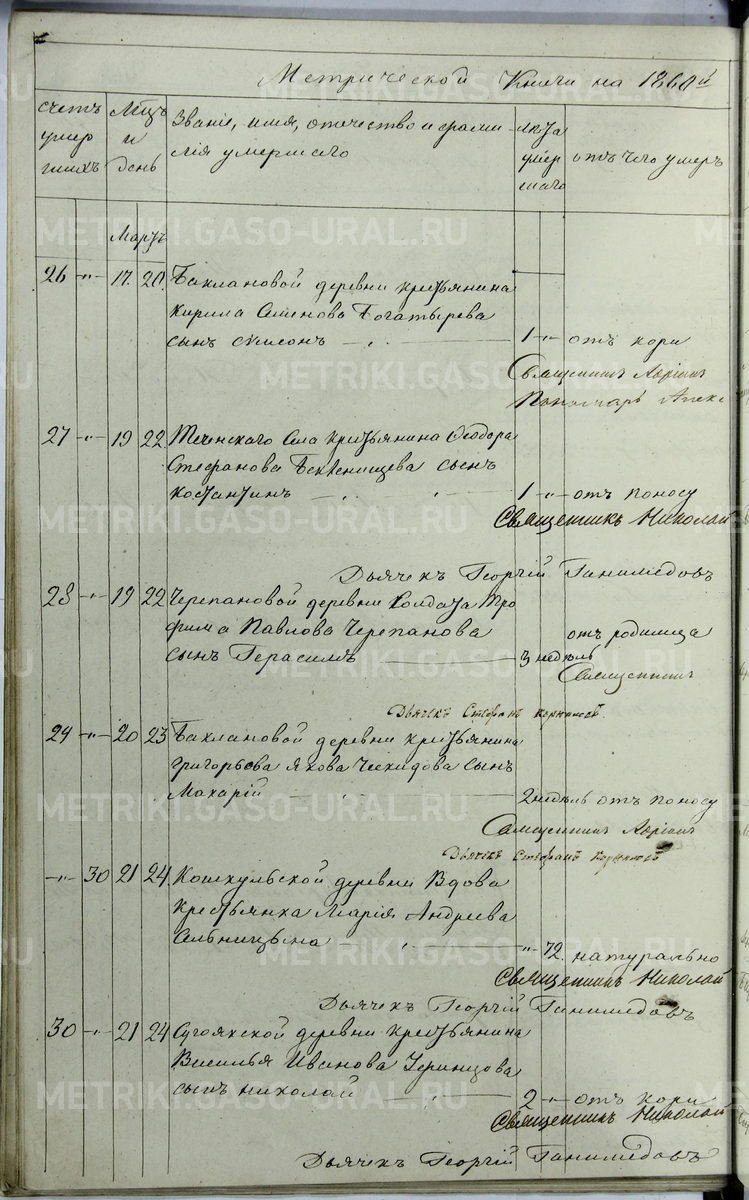 Метрической Книги на 1860й
счетъ умер шихъ
Мцъ и день
Званіе, имя, отчество и фами
лія умершаго
лѣта умер шаго
отъ чего умеръ
Мартъ
26 -"- 17. 20. Баклановой деревни крестьянина
Кирила Семенова Богатырева
сынъ Симеонъ 1 -"- отъ кори
Священникъ Адріанъ
Пономарь Алекс
27 -"- 19 22 Теченскаго Села крестьянина Ѳеодора
Стефанова Бекленищева сынъ
Костантинъ 1 -"- отъ поносу
Священникъ Николай
Дьячекъ Георгій Ганимедовъ
28 -"- 19 22 Черепановой деревни Солдата Тро
фима Павлова Черепанова
отъ родимца
сынъ Герасимъ 3 недѣль
Священникъ
Дьячекъ Стефанъ
29 -"- 20 23 Баклановой деревни крестьянина
Григорьева Якова Чехидова сынъ
Макарій 2 недѣль отъ поносу
Священникъ Адріанъ
Дьячекъ Стефанъ
-"- 30 21 24 Кошкульской деревни Вдова
Крестьянка Марія Андреева
Сельницына -"- 72. натурально
Священникъ Николай
Дьячекъ Георгій Ганимедовъ
30 -"- 21 24 Сугоякской деревни крестьянина
Василья Иванова Уфинцова
сынъ Николай 2 -"- отъ кори
Священникъ Николай
Дьячекъ Георгій Ганимедовъ
METRIKI.GASO-URAL.RU